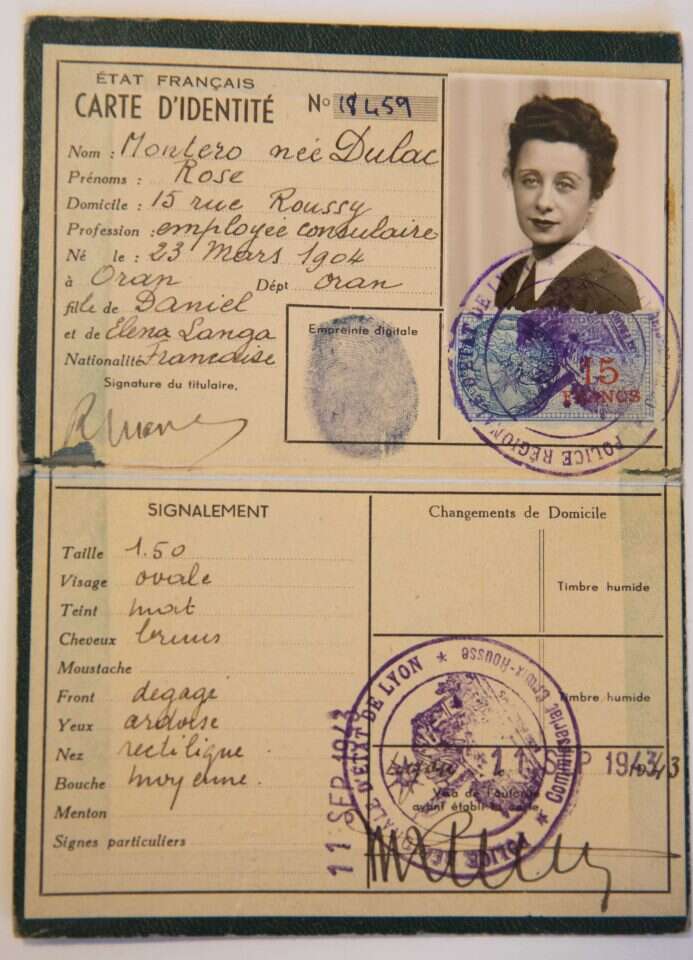 ÉTAT FRANÇAIS
CARTE D'IDENTITÉ
No 18459
Nom : Montero née Dulac
Prénoms : Rose
Domicile : 15 rue Roussy
Profession : employée consulaire
Né le : 23 Mars 1904
à Oran Dépt Oran
fille de Daniel
et de Elena Langa
Nationalité Française
Signature du titulaire.
Empreinte digitale
15
FRANCS
POLICE RÉGIONALE D'ÉTAT DE LYON
SIGNALEMENT
Taille 1.50
Visage ovale
Teint mat
Cheveux bruns
Moustache
Front dégagé
Yeux ardoise
Nez rectiligne
Bouche moyenne
Menton
Signes particuliers
Changements de Domicile
Timbre humide
Timbre humide
Lyon le 11 SEP 1943
Visa de l'autorité
ayant établi la carte,
11 SEP 1943
POLICE RÉGIONALE D'ÉTAT DE LYON
Commissariat Croix-Rousse